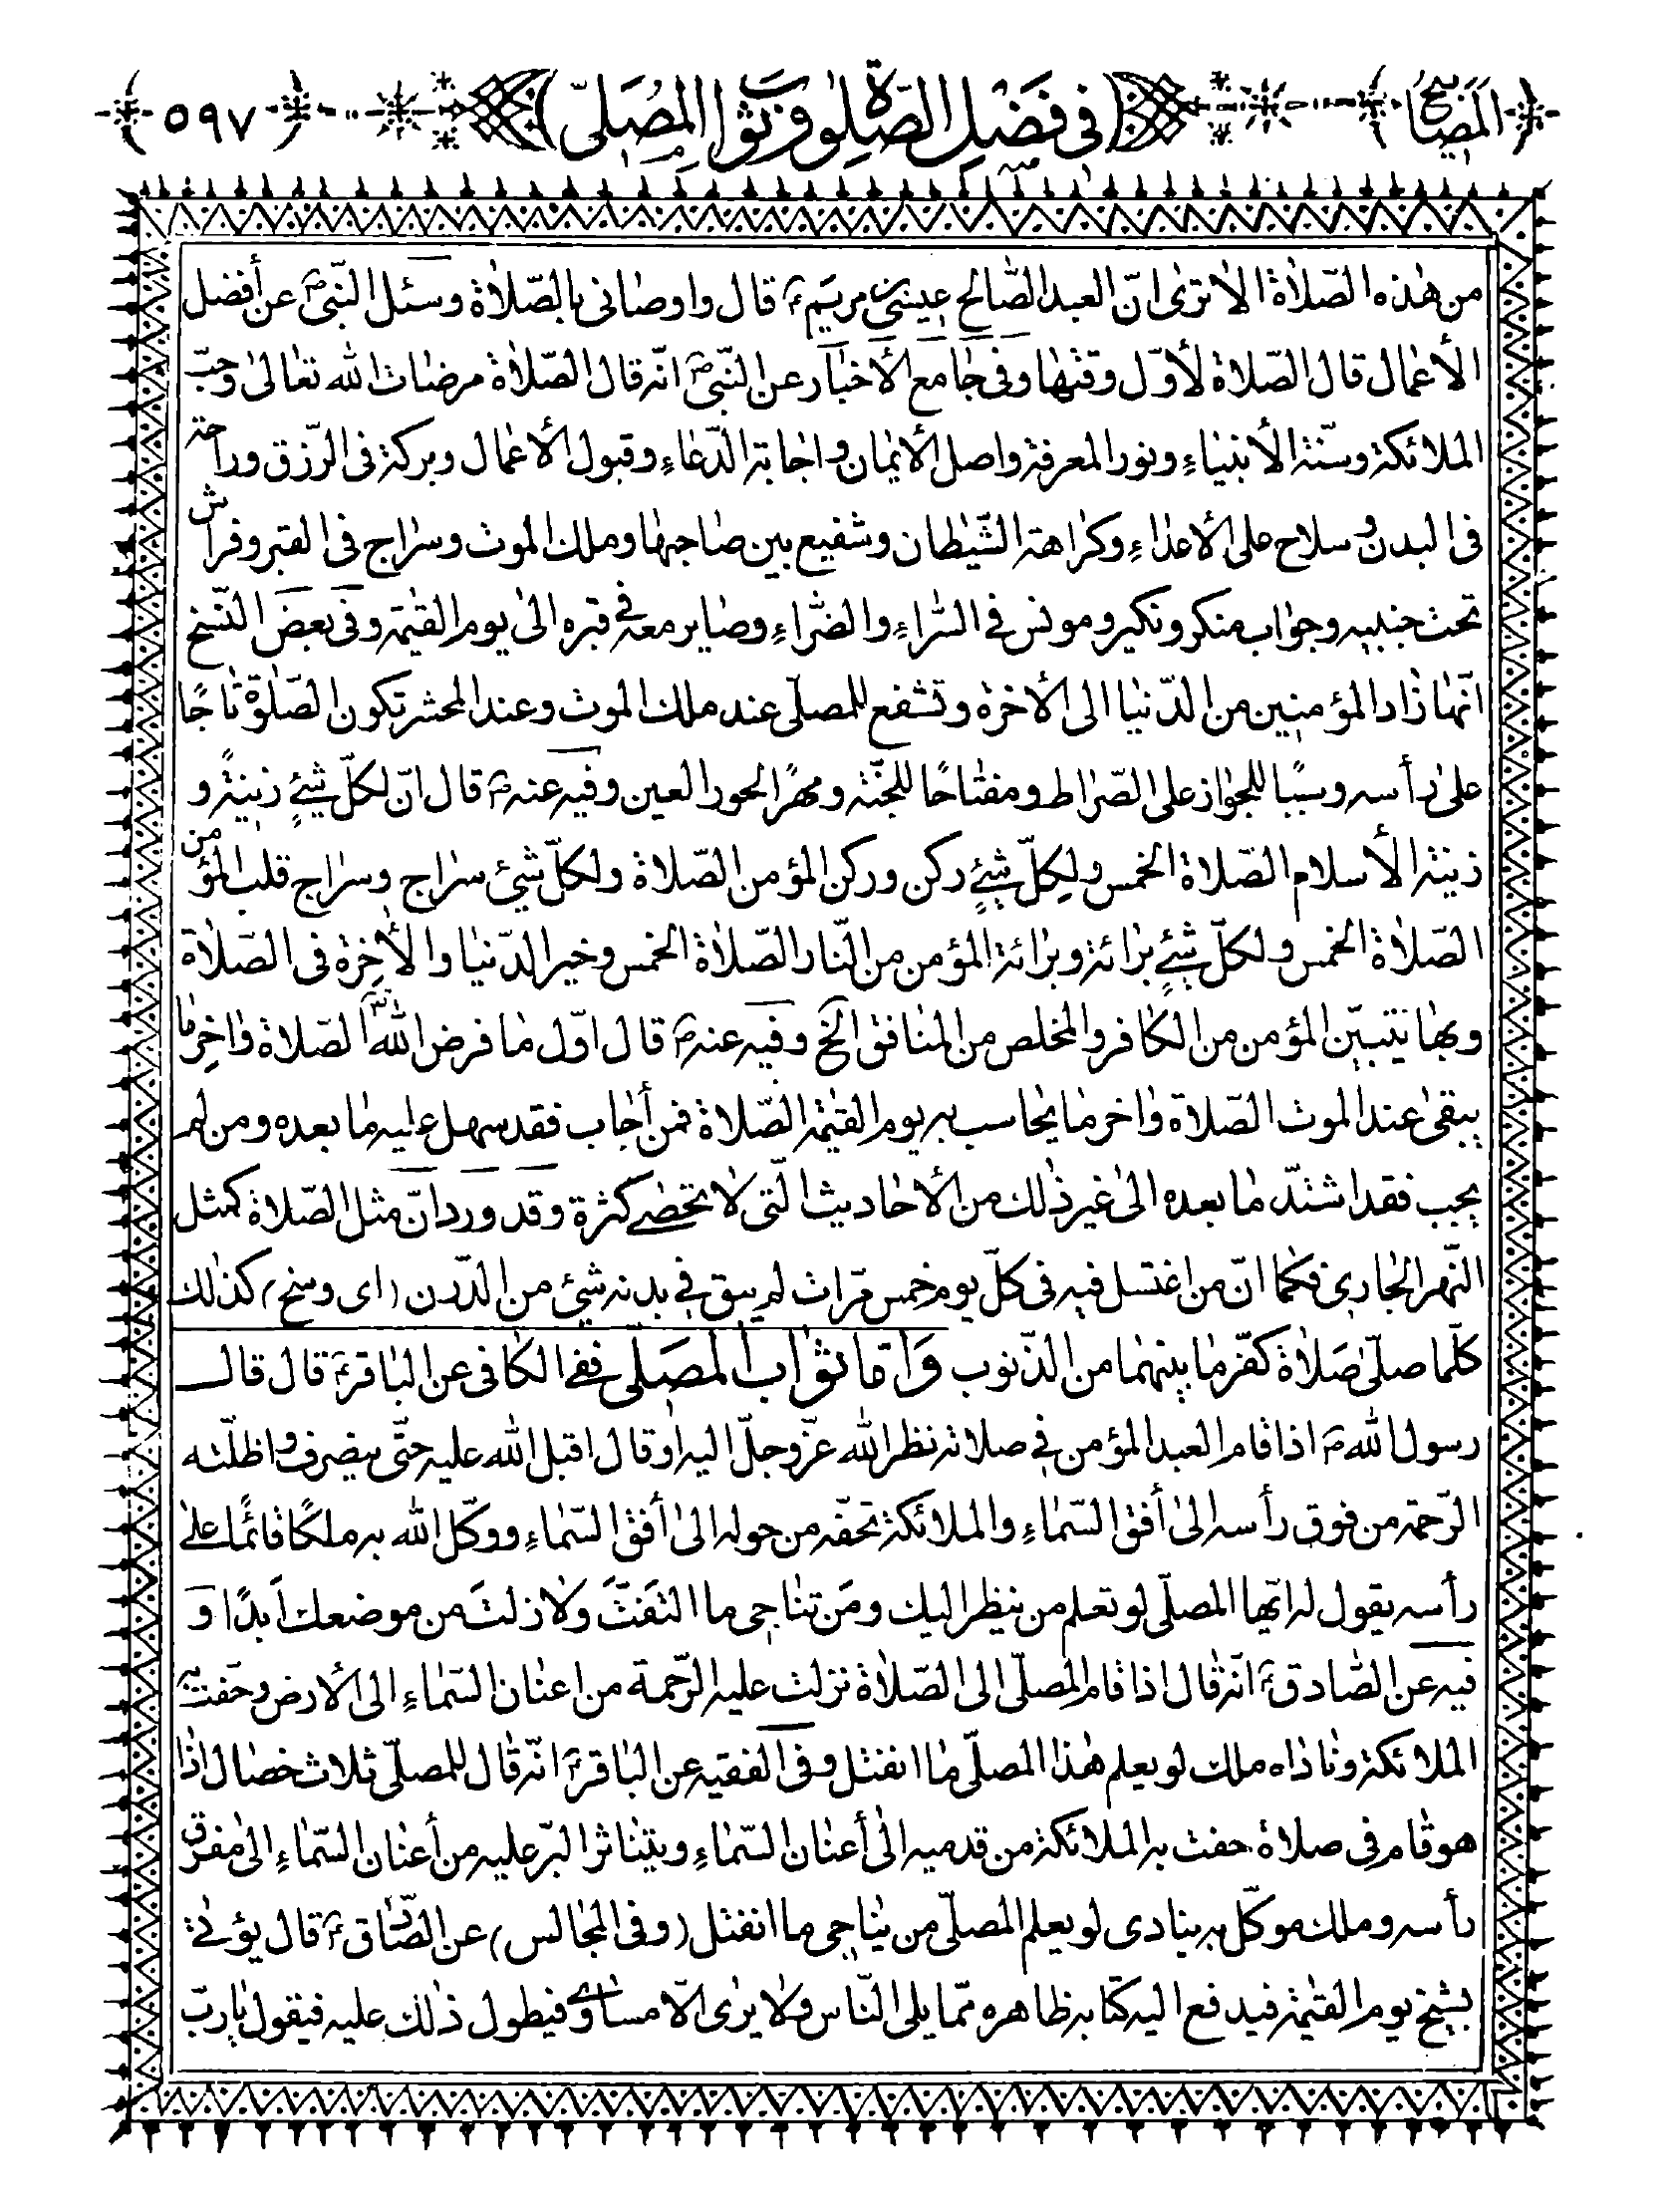 المصابيح (في فضل الصلوة وثواب المصلّي) ٥٩٧
من هذه الصّلاة الا ترى انّ العبد الصّالح عيسى بن مريم ع قال واوصاني بالصّلاة وسئل النّبيّ ص عن أفضل
الأعمال قال الصّلاة لأوّل وقتها وفي جامع الأخبار عن النّبيّ ص انّه قال الصّلاة مرضات الله تعالى وحبّ
الملائكة وسنّة الأنبياء ونور المعرفة واصل الأيمان واجابة الدّعاء وقبول الأعمال وبركة في الرّزق وراحة
في البدن وسلاح على الأعداء وكراهة الشّيطان وشفيع بين صاحبها وملك الموت وسراج في القبر وفراش
تحت جنبيه وجواب منكر ونكير ومونس في السّراء والضّراء وصاير معه في قبره الى يوم القيمة وفي بعض النّسخ
انّها زاد المؤمنين من الدّنيا الى الأخرة وتشفع للمصلّي عند ملك الموت وعند المحشر تكون الصّلوة تاجًا
على رأسه وسببًا للجواز على الصّراط ومفتاحًا للجنّة ومهرًا لحور العين وفيه عنه ص قال انّ لكلّ شيءٍ زينةً و
زينة الأسلام الصّلاة الخمس ولكلّ شيءٍ ركن وركن المؤمن الصّلاة ولكلّ شيء سراج وسراج قلب المؤمن
الصّلاة الخمس ولكلّ شيءٍ برائة وبرائة المؤمن من النّار الصّلاة الخمس وخير الدّنيا والأخرة في الصّلاة
وبها يتبيّن المؤمن من الكافر والمخلص من المنافق الخ وفيه عنه ص قال اوّل ما فرض الله الصّلاة واخر ما
يبقى عند الموت الصّلاة واخر ما يحاسب به يوم القيمة الصّلاة فمن أجاب فقد سهل عليه ما بعده ومن لم
يجب فقد اشتدّ ما بعده الى غير ذلك من الأحاديث الّتي لا تحصى كثرة وقد ورد انّ مثل الصّلاة كمثل
النّهر الجاري فكما انّ من اغتسل فيه في كلّ يوم خمس مرّات لم يبق في بدنه شيء من الدّرن (اي وسخ) كذلك
كلّما صلّى صلاة كفّر ما بينهما من الذّنوب وَامّا ثواب المصلّي ففي الكافي عن الباقر ع قال قال
رسول الله ص اذا قام العبد المؤمن في صلاته نظر الله عزّ وجلّ اليه او قال اقبل الله عليه حتّى ينصرف واظلّته
الرّحمة من فوق رأسه الى أفق السّماء والملائكة تحفّه من حوله الى أفق السّماء ووكّل الله به ملكًا قائمًا على
رأسه يقول له ايّها المصلّي لو تعلم من ينظر اليك ومَن تناجي ما التفتَّ ولا زلتَ من موضعك اَبدًا وَ
فيه عن الصّادق ع انّه قال اذا قام المصلّي الى الصّلاة نزلت عليه الرّحمة من اعنان السّماء الى الأرض وحفت به
الملائكة وناداه ملك لو يعلم هذا المصلّي ما انفتل وفي الفقيه عن الباقر ع انّه قال للمصلّي ثلاث خصال اذا
هو قام في صلاة حفت به الملائكة من قدميه الى أعنان السّماء ويتناثر البرّ عليه من أعنان السّماء الى مفرق
رأسه وملك موكّل به ينادي لو يعلم المصلّي من يناجي ما انفتل (وفي المجالس) عن الصّادق ع قال يؤتى
بشيخ يوم القيمة فيدفع اليه كتابه ظاهره ممّا يلي النّاس ولا يرى الّا مساوي فيطول ذلك عليه فيقول يا ربّ